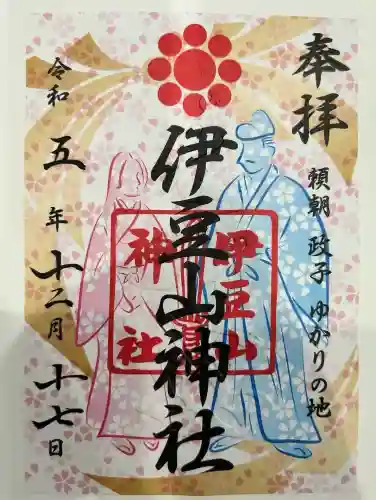 奉拝
頼朝 政子 ゆかりの地
伊豆山神社
令和五年十二月十七日